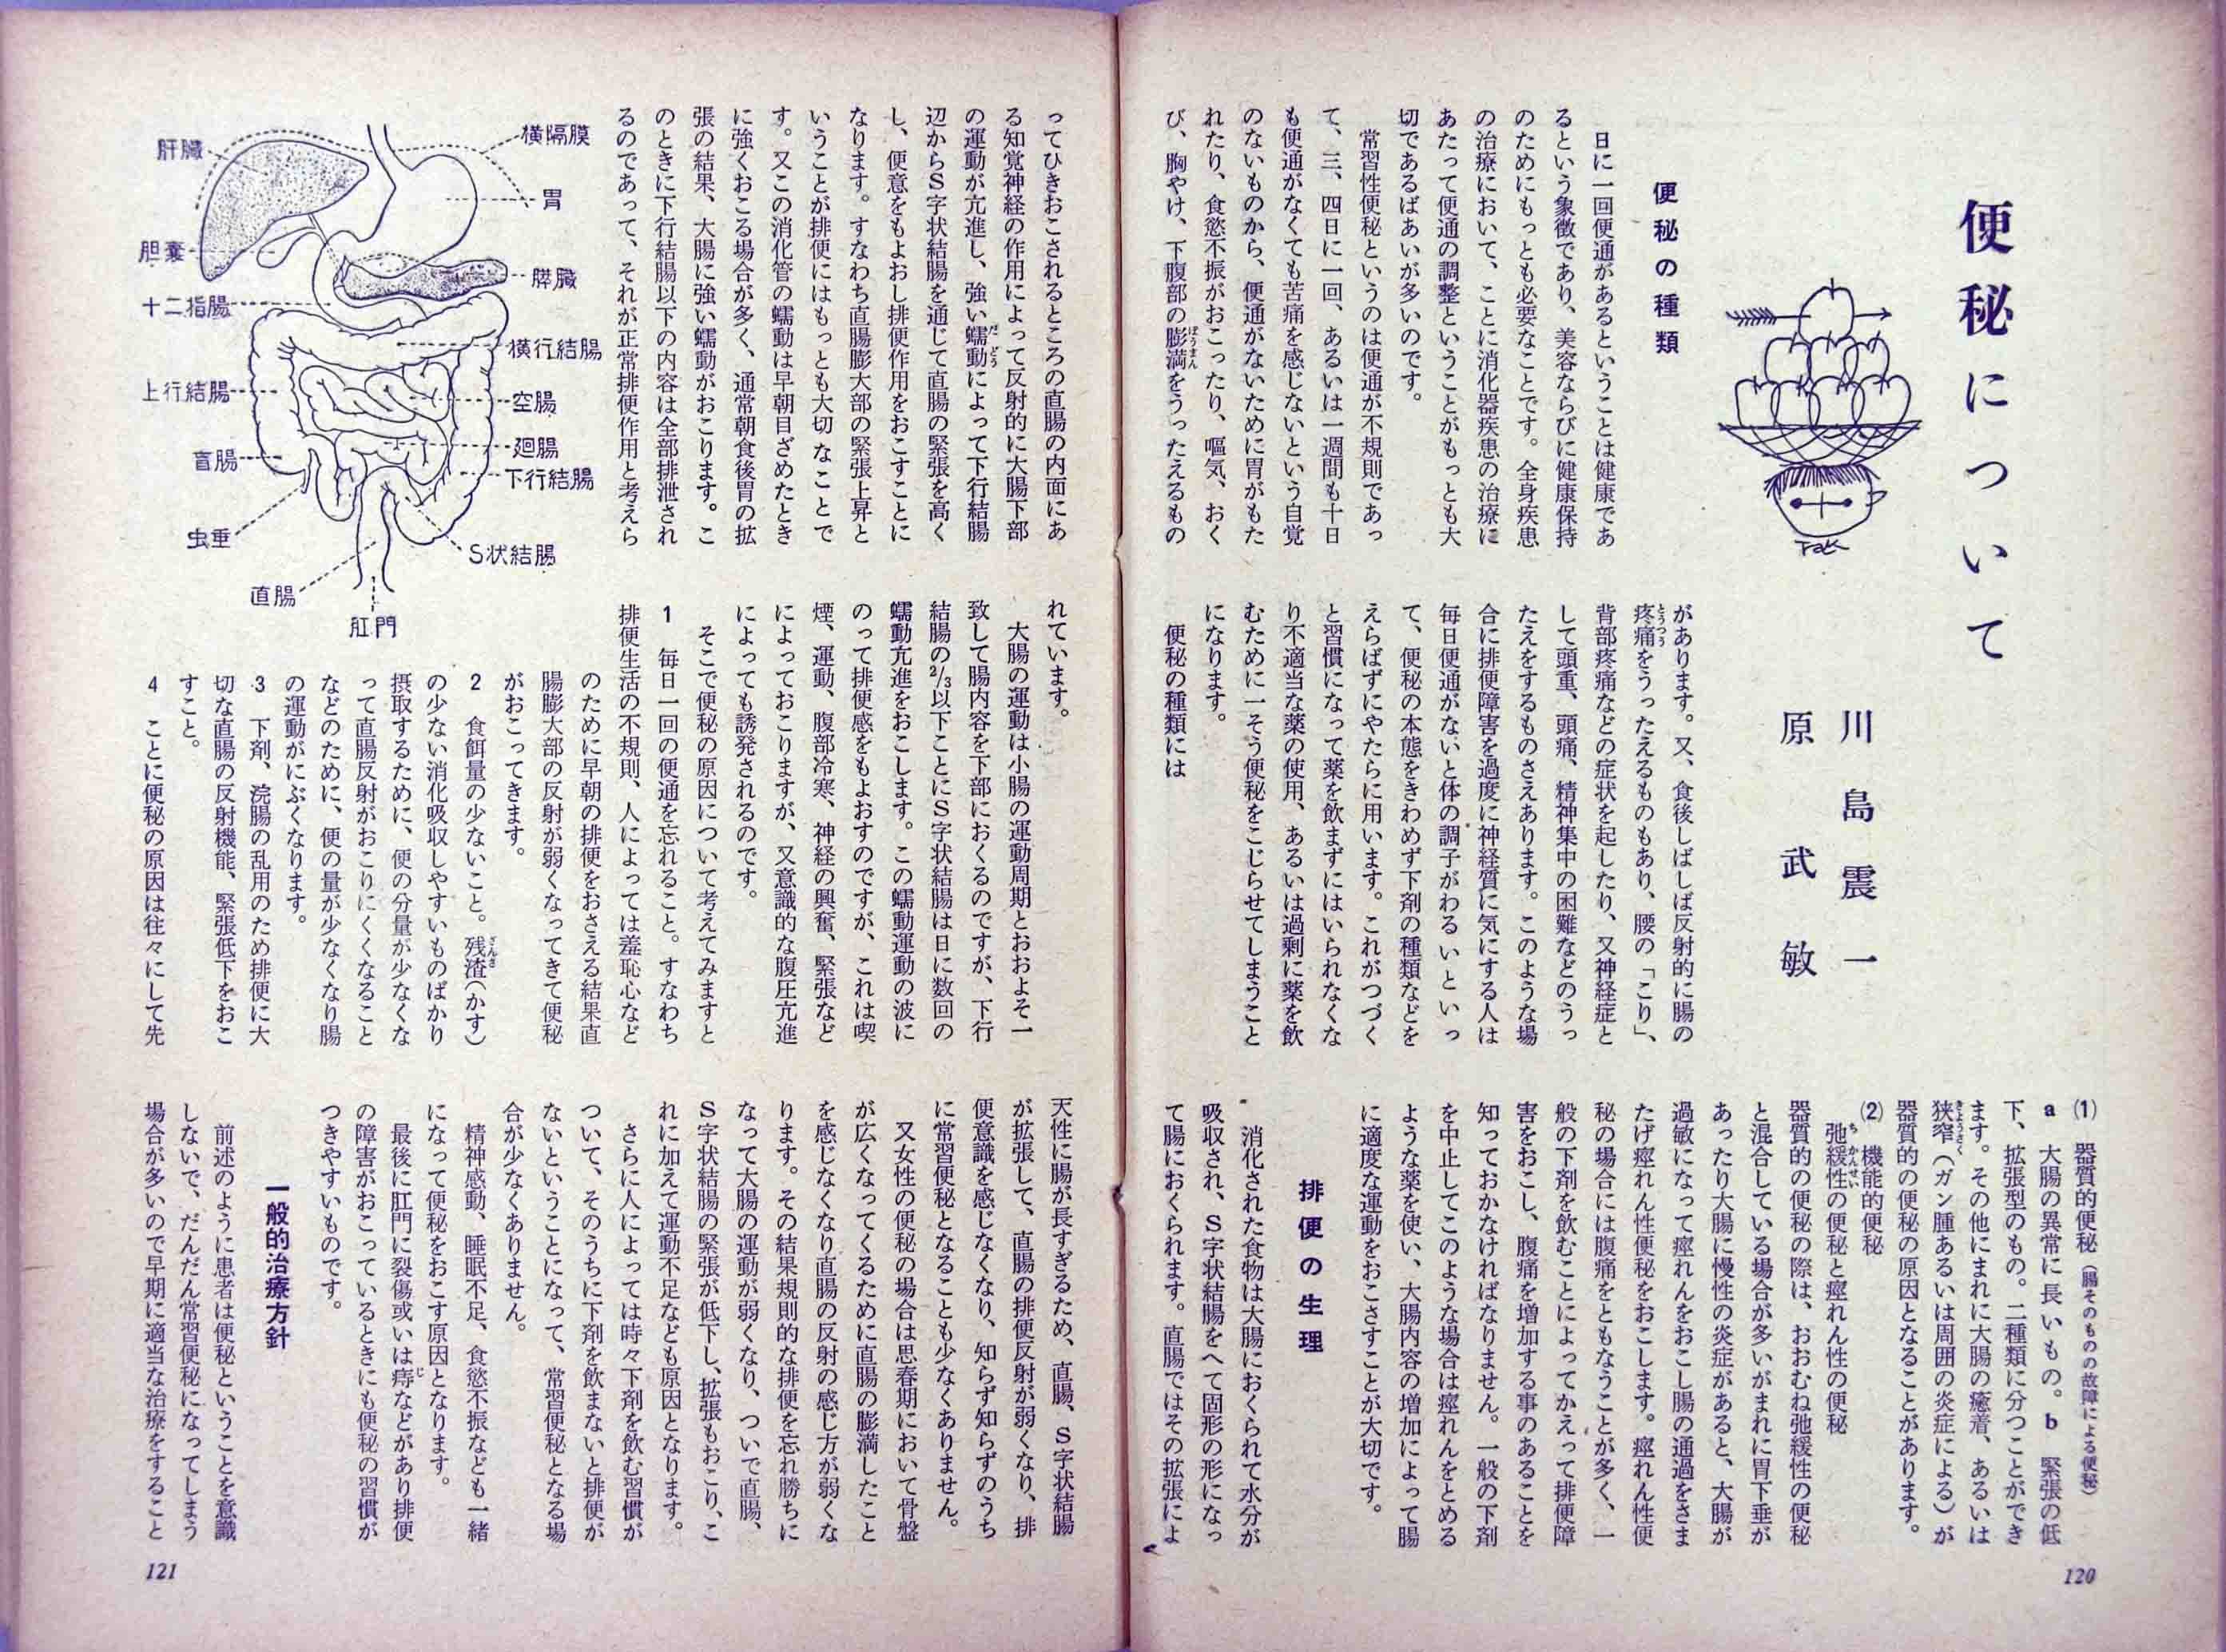 便秘について
川島震一
原武敏
便秘の種類
日に一回便通があるということは健康であ
るという象徴であり、美容ならびに健康保持
のためにもっとも必要なことです。全身疾患
の治療において、ことに消化器疾患の治療に
あたって便通の調整ということがもっとも大
切であるばあいが多いのです。
常習性便秘というのは便通が不規則であっ
て、三、四日に一回、あるいは一週間も十日
も便通がなくても苦痛を感じないという自覚
のないものから、便通がないために胃がもた
れたり、食慾不振がおこったり、嘔気、おく
び、胸やけ、下腹部の膨満をうったえるもの
があります。又、食後しばしば反射的に腸の
疼痛をうったえるものもあり、腰の「こり」、
背部疼痛などの症状を起したり、又神経症と
して頭重、頭痛、精神集中の困難などのうっ
たえをするものさえあります。このような場
合に排便障害を過度に神経質に気にする人は
毎日便通がないと体の調子がわるいといっ
て、便秘の本態をきわめず下剤の種類などを
えらばずにやたらに用います。これがつづく
と習慣になって薬を飲まずにはいられなくな
り不適当な薬の使用、あるいは過剰に薬を飲
むために一そう便秘をこじらせてしまうこと
になります。
便秘の種類には
(1) 器質的便秘（腸そのものの故障による便秘）
a 大腸の異常に長いもの。b 緊張の低
下、拡張型のもの。二種類に分つことができ
ます。その他にまれに大腸の癒着、あるいは
狭窄（ガン腫あるいは周囲の炎症による）が
器質的の便秘の原因となることがあります。
(2) 機能的便秘
弛緩性の便秘と痙れん性の便秘
器質的の便秘の際は、おおむね弛緩性の便秘
と混合している場合が多いがまれに胃下垂が
あったり大腸に慢性の炎症があると、大腸が
過敏になって痙れんをおこし腸の通過をさま
たげ痙れん性便秘をおこします。痙れん性便
秘の場合には腹痛をともなうことが多く、一
般の下剤を飲むことによってかえって排便障
害をおこし、腹痛を増加する事のあることを
知っておかなければなりません。一般の下剤
を中止してこのような場合は痙れんをとめる
ような薬を使い、大腸内容の増加によって腸
に適度な運動をおこさすことが大切です。
排便の生理
消化された食物は大腸におくられて水分が
吸収され、S字状結腸をへて固形の形になっ
て腸におくられます。直腸ではその拡張によ
120
ってひきおこされるところの直腸の内面にあ
る知覚神経の作用によって反射的に大腸下部
の運動が亢進し、強い蠕動によって下行結腸
辺からS字状結腸を通じて直腸の緊張を高く
し、便意をもよおし排便作用をおこすことに
なります。すなわち直腸膨大部の緊張上昇と
いうことが排便にはもっとも大切なことで
す。又この消化管の蠕動は早朝目ざめたとき
に強くおこる場合が多く、通常朝食後胃の拡
張の結果、大腸に強い蠕動がおこります。こ
のときに下行結腸以下の内容は全部排泄され
るのであって、それが正常排便作用と考えら
横隔膜
肝臓
胃
胆嚢
膵臓
十二指腸
横行結腸
上行結腸
空腸
廻腸
盲腸
下行結腸
虫垂
S状結腸
直腸
肛門
れています。
大腸の運動は小腸の運動周期とおおよそ一
致して腸内容を下部におくるのですが、下行
結腸の2/3以下ことにS字状結腸は日に数回の
蠕動亢進をおこします。この蠕動運動の波に
のって排便感をもよおすのですが、これは喫
煙、運動、腹部冷寒、神経の興奮、緊張など
によっておこりますが、又意識的な腹圧亢進
によっても誘発されるのです。
そこで便秘の原因について考えてみますと
1 毎日一回の便通を忘れること。すなわち
排便生活の不規則、人によっては羞恥心など
のために早朝の排便をおさえる結果直
腸膨大部の反射が弱くなってきて便秘
がおこってきます。
2 食餌量の少ないこと。残渣（かす）
の少ない消化吸収しやすいものばかり
摂取するために、便の分量が少なくな
って直腸反射がおこりにくくなること
などのために、便の量が少なくなり腸
の運動がにぶくなります。
3 下剤、浣腸の乱用のため排便に大
切な直腸の反射機能、緊張低下をおこ
すこと。
4 ことに便秘の原因は往々にして先
天性に腸が長すぎるため、直腸、S字状結腸
が拡張して、直腸の排便反射が弱くなり、排
便意識を感じなくなり、知らず知らずのうち
に常習便秘となることも少なくありません。
又女性の便秘の場合は思春期において骨盤
が広くなってくるために直腸の膨満したこと
を感じなくなり直腸の反射の感じ方が弱くな
ります。その結果規則的な排便を忘れ勝ちに
なって大腸の運動が弱くなり、ついで直腸、
S字状結腸の緊張が低下し、拡張もおこり、こ
れに加えて運動不足なども原因となります。
さらに人によっては時々下剤を飲む習慣が
ついて、そのうちに下剤を飲まないと排便が
ないということになって、常習便秘となる場
合が少なくありません。
精神感動、睡眠不足、食慾不振なども一緒
になって便秘をおこす原因となります。
最後に肛門に裂傷或いは痔などがあり排便
の障害がおこっているときにも便秘の習慣が
つきやすいものです。
一般的治療方針
前述のように患者は便秘ということを意識
しないで、だんだん常習便秘になってしまう
場合が多いので早期に適当な治療をすること
121